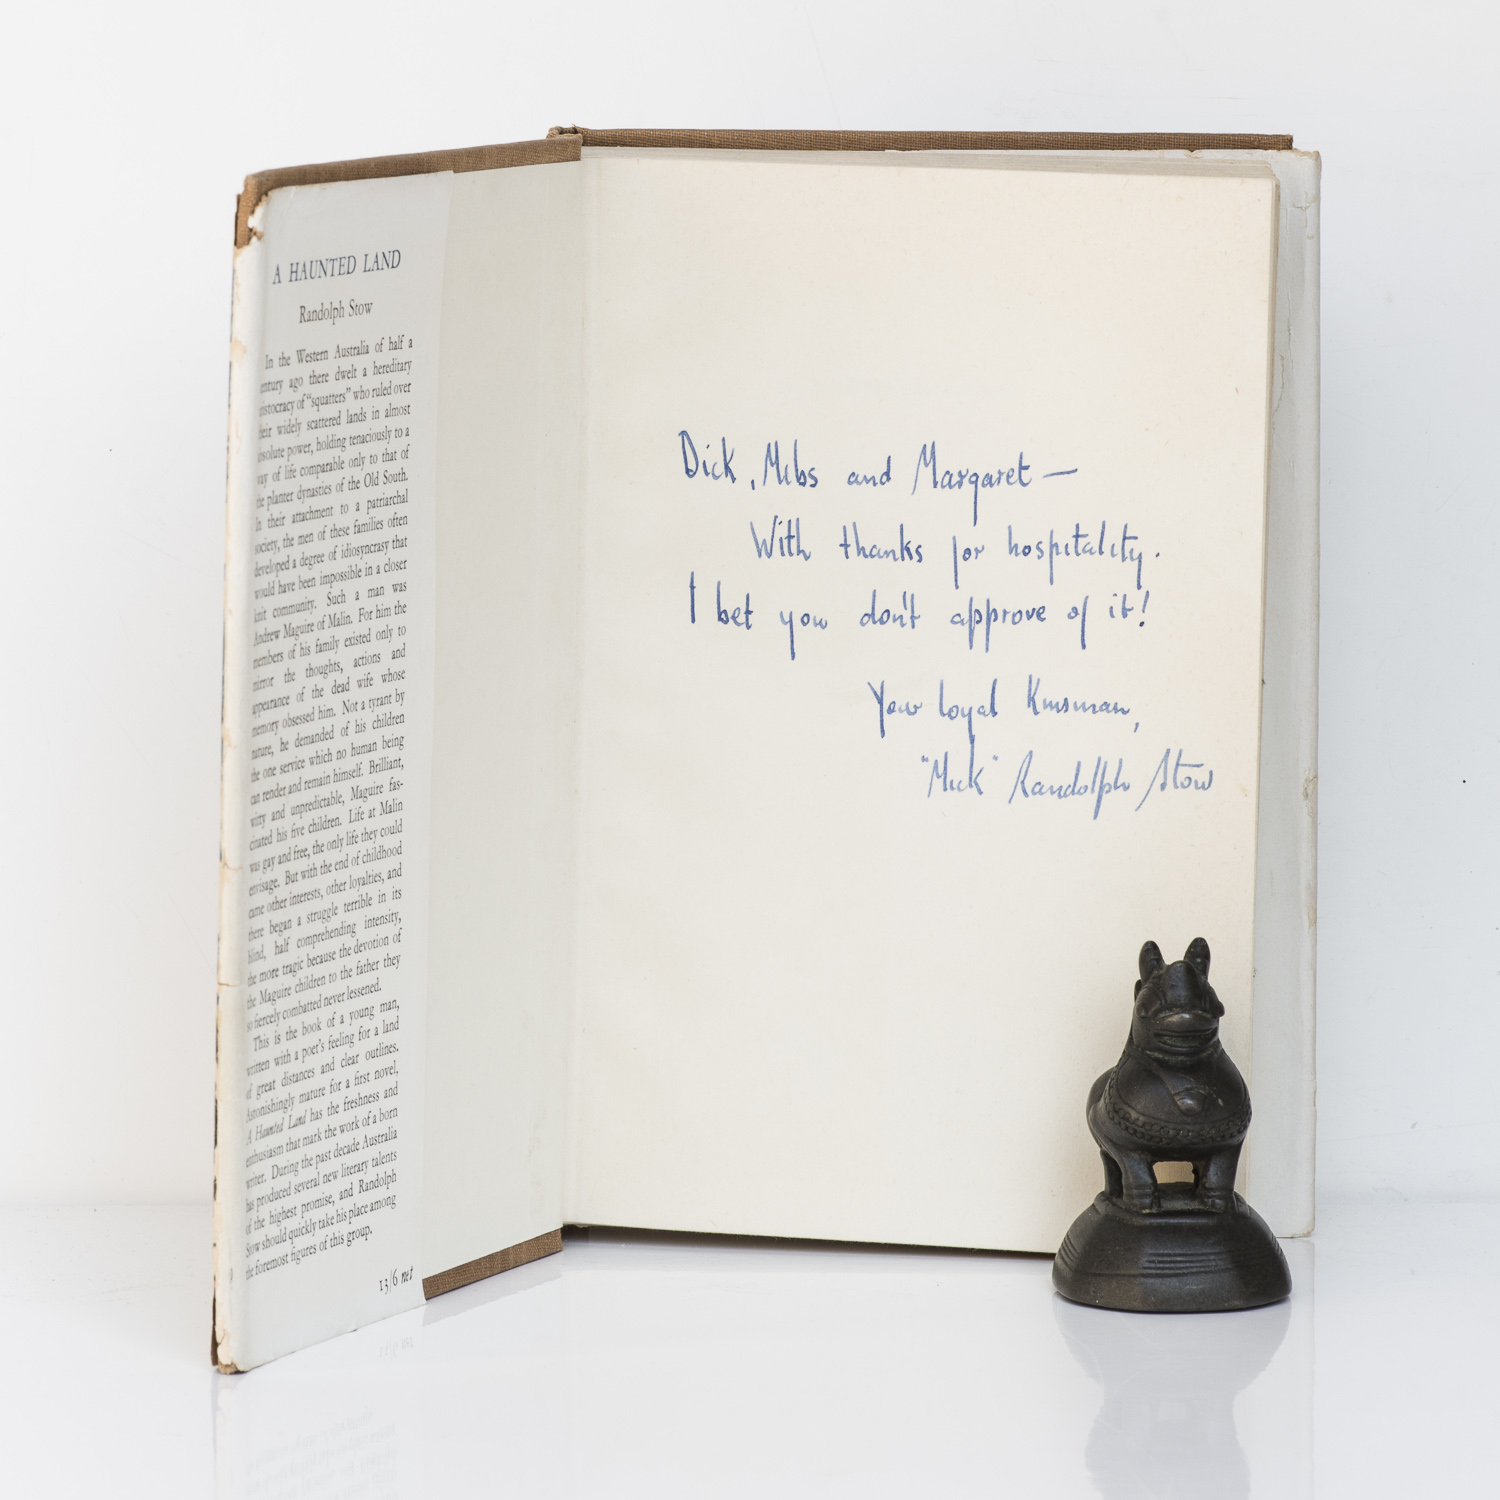 A HAUNTED LAND
Randolph Stow
In the Western Australia of half a
century ago there dwelt a hereditary
aristocracy of "squatters" who ruled over
their widely scattered lands in almost
absolute power, holding tenaciously to a
way of life comparable only to that of
the planter dynasties of the Old South.
In their attachment to a patriarchal
society, the men of these families often
developed a degree of idiosyncrasy that
would have been impossible in a closer
knit community. Such a man was
Andrew Maguire of Malin. For him the
members of his family existed only to
mirror the thoughts, actions and
appearance of the dead wife whose
memory obsessed him. Not a tyrant by
nature, he demanded of his children
the one service which no human being
can render and remain himself. Brilliant,
witty and unpredictable, Maguire fas-
cinated his five children. Life at Malin
was gay and free, the only life they could
envisage. But with the end of childhood
came other interests, other loyalties, and
there began a struggle terrible in its
blind, half comprehending intensity,
the more tragic because the devotion of
the Maguire children to the father they
so fiercely combatted never lessened.
This is the book of a young man,
written with a poet's feeling for a land
of great distances and clear outlines.
Astonishingly mature for a first novel,
A Haunted Land has the freshness and
enthusiasm that mark the work of a born
writer. During the past decade Australia
has produced several new literary talents
of the highest promise, and Randolph
Stow should quickly take his place among
the foremost figures of this group.
13/6 net
Dick, Mibs and Margaret —
With thanks for hospitality.
I bet you don't approve of it!
Your loyal Kinsman,
"Mick" Randolph Stow